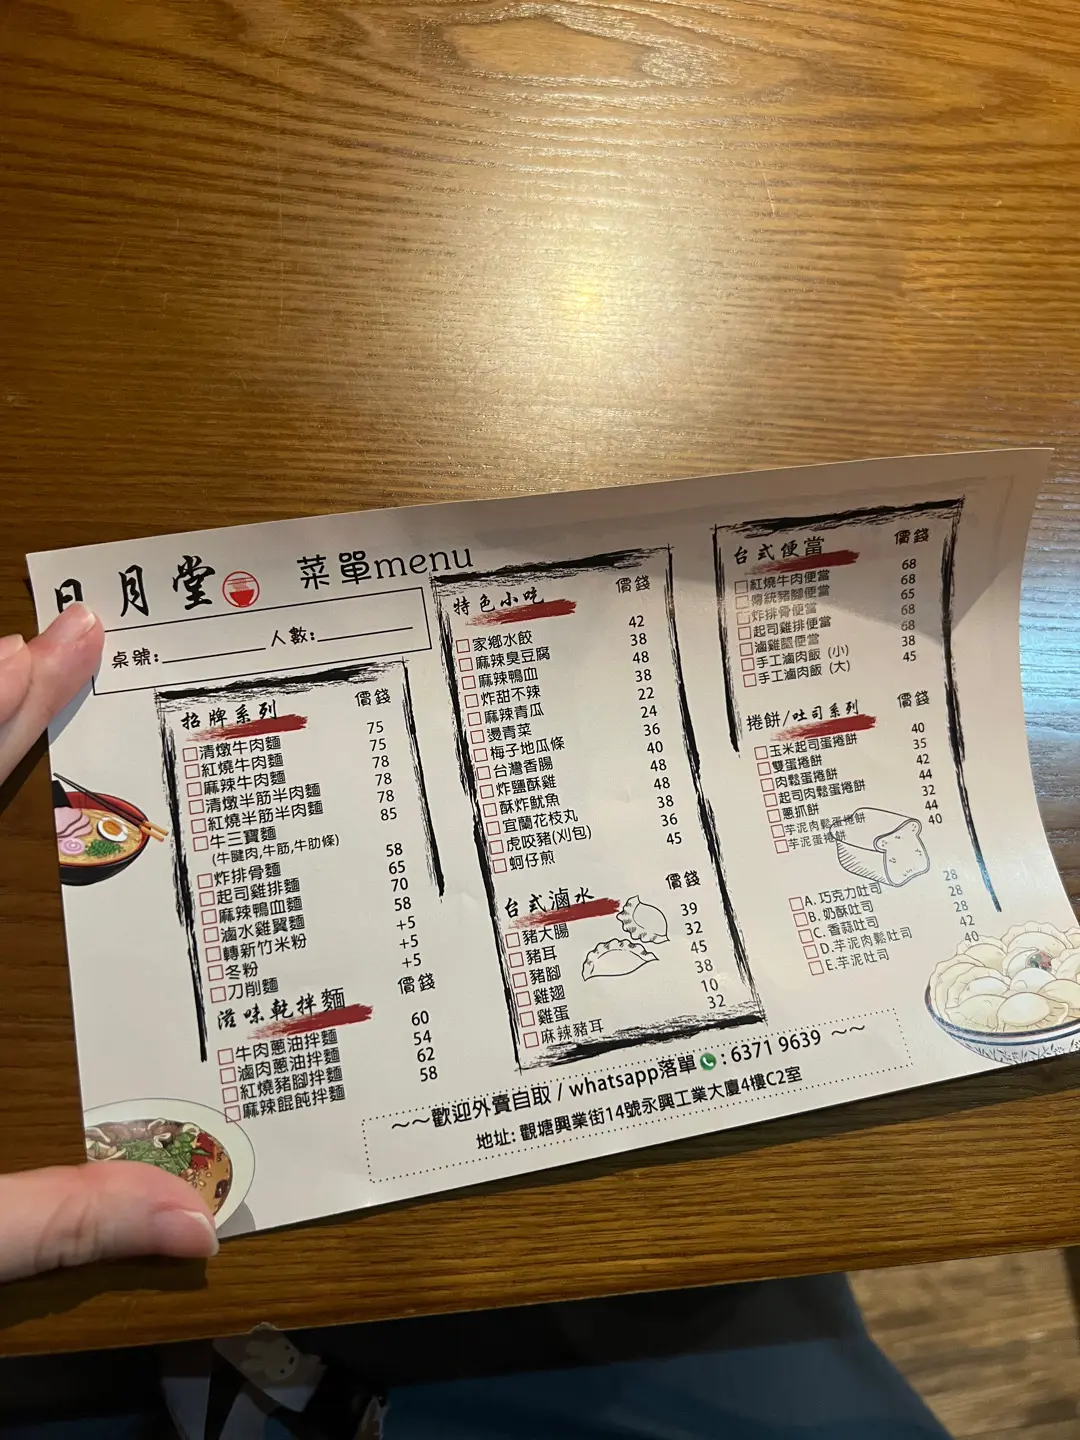 日月堂
菜單menu
桌號:________ 人數:________
招牌系列 價錢
清燉牛肉麵 75
紅燒牛肉麵 75
麻辣牛肉麵 78
清燉半筋半肉麵 78
紅燒半筋半肉麵 78
牛三寶麵 85
(牛腱肉,牛筋,牛肋條)
炸排骨麵 58
起司雞排麵 65
麻辣鴨血麵 70
滷水雞翼麵 58
轉新竹米粉 +5
冬粉 +5
刀削麵 +5
滋味乾拌麵 價錢
牛肉蔥油拌麵 60
滷肉蔥油拌麵 54
紅燒豬腳拌麵 62
麻辣餛飩拌麵 58
特色小吃 價錢
家鄉水餃 42
麻辣臭豆腐 38
麻辣鴨血 48
炸甜不辣 38
麻辣青瓜 22
燙青菜 24
梅子地瓜條 36
台灣香腸 40
炸鹽酥雞 48
酥炸魷魚 48
宜蘭花枝丸 38
虎咬豬(刈包) 36
蚵仔煎 45
台式滷水 價錢
豬大腸 39
豬耳 32
豬腳 45
雞翅 38
雞蛋 10
麻辣豬耳 32
台式便當 價錢
紅燒牛肉便當 68
傳統豬腳便當 68
炸排骨便當 65
起司雞排便當 68
滷雞腿便當 68
手工滷肉飯 (小) 38
手工滷肉飯 (大) 45
捲餅/吐司系列 價錢
玉米起司蛋捲餅 40
雙蛋捲餅 35
肉鬆蛋捲餅 42
起司肉鬆蛋捲餅 44
蔥抓餅 32
芋泥肉鬆蛋捲餅 44
芋泥蛋捲餅 40
A. 巧克力吐司 28
B. 奶酥吐司 28
C. 香蒜吐司 28
D.芋泥肉鬆吐司 42
E.芋泥吐司 40
~~歡迎外賣自取 / whatsapp落單 : 6371 9639 ~~
地址: 觀塘興業街14號永興工業大廈4樓C2室